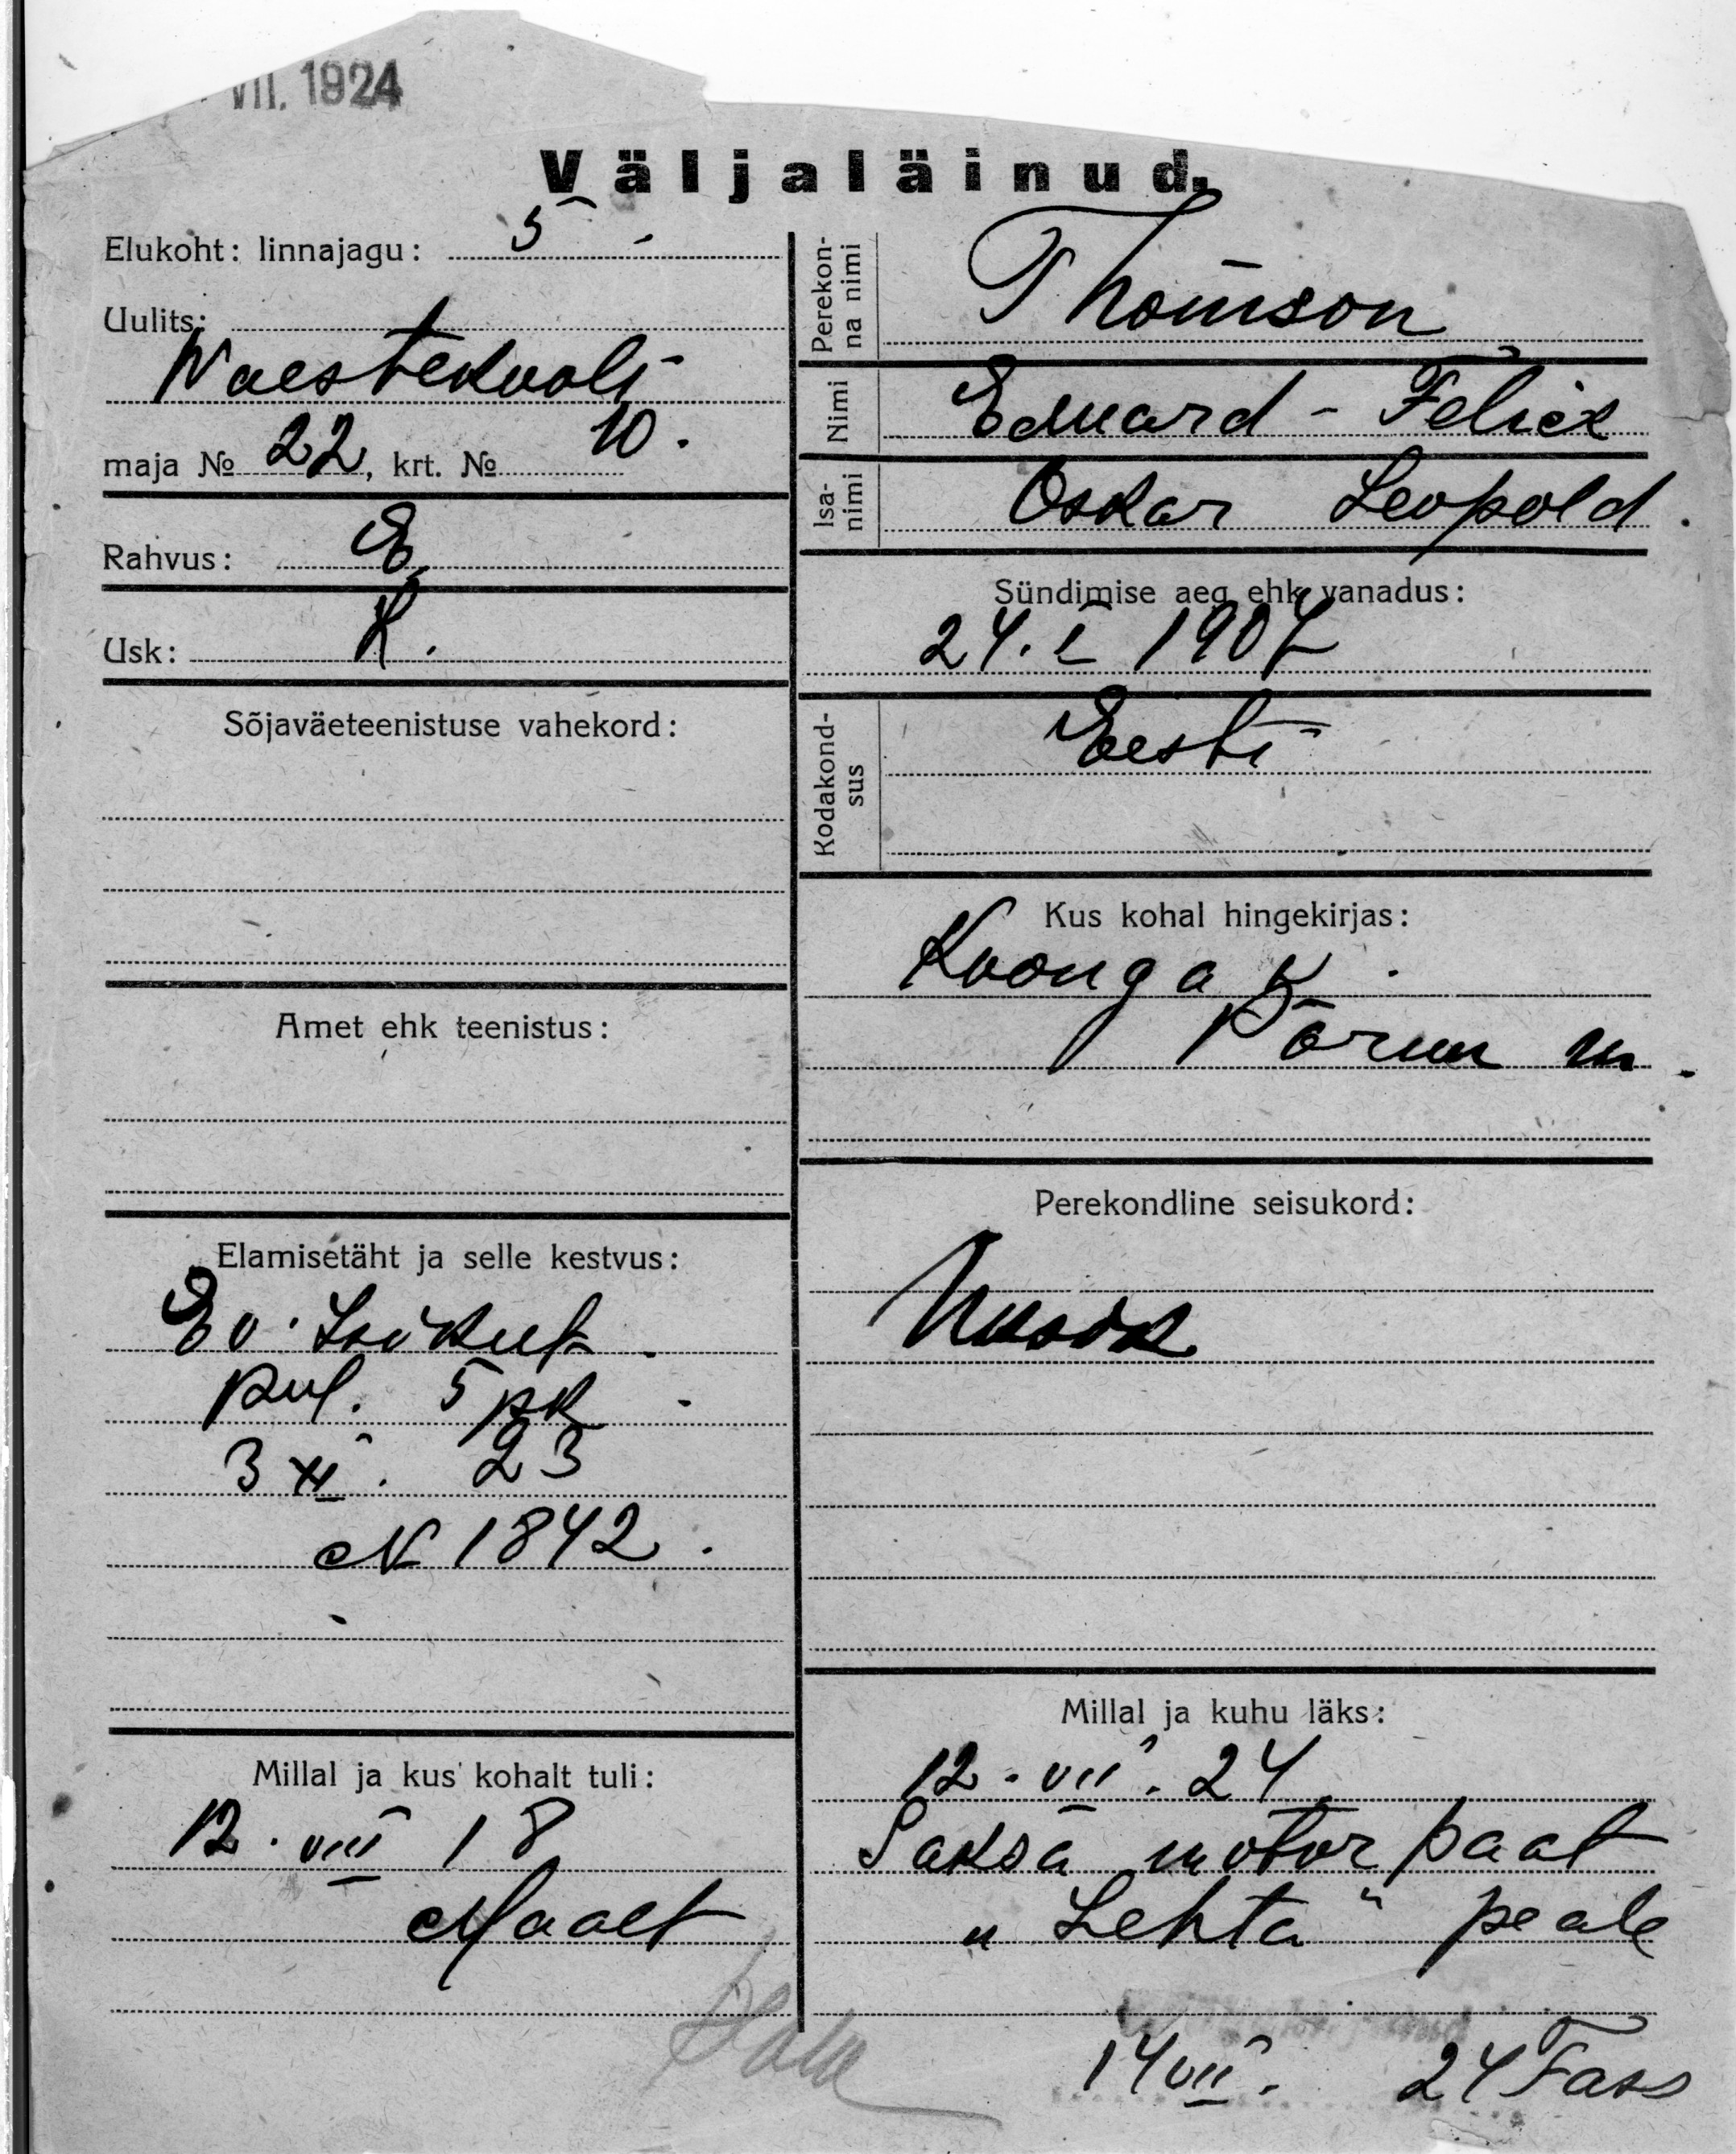 VII. 1924
Väljaläinud.
Elukoht: linnajagu: 5
Uulits:
Waestekooli
maja № 22, krt. № 10.
Rahvus: E.
Usk: K.
Sõjaväeteenistuse vahekord:
Amet ehk teenistus:
Elamisetäht ja selle kestvus:
Ev. Isikut.
pol. 5 pk
3 XI. 23
N 1842.
Millal ja kus kohalt tuli:
12. VIII 18
Maalt
Perekonna nimi
Thomson
Nimi
Eduard - Felix
Isanimi
Oskar Leopold.
Sündimise aeg ehk vanadus:
24. I 1907
Kodakondsus
Eesti
Kus kohal hingekirjas:
Koonga v.
Pärnu m.
Perekondline seisukord:
Millal ja kuhu läks:
12. VII. 24
Saksa motor paat
„Lehta" peale
14 VII. 24 Fass